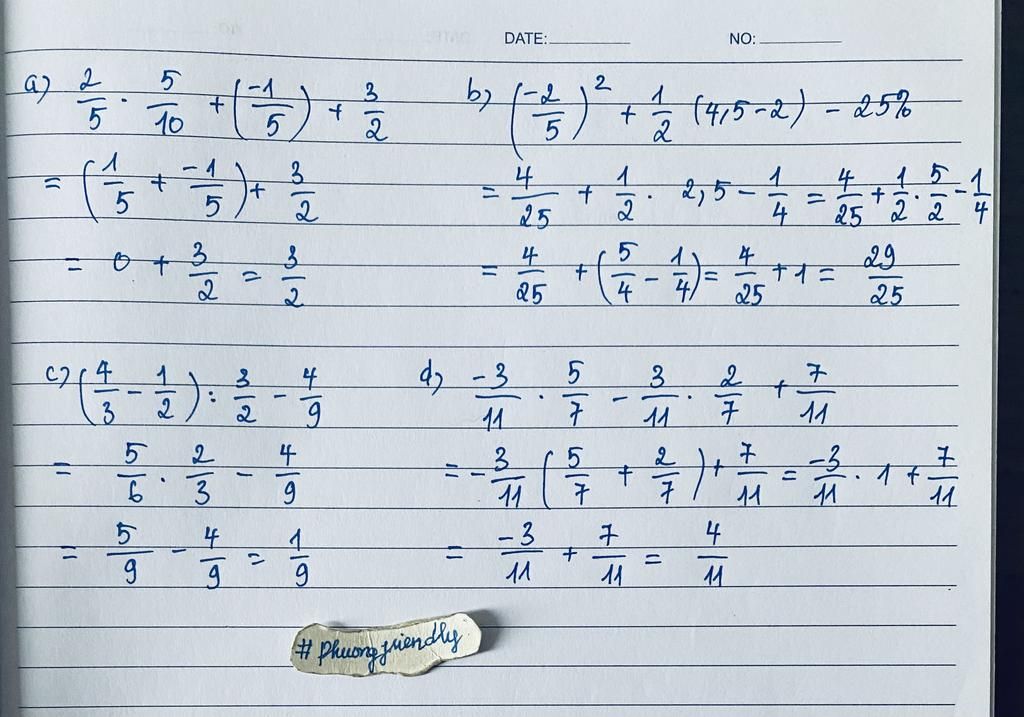 DATE: NO:
a) 2/5 · 5/10 + (-1/5) + 3/2
= (1/5 + -1/5) + 3/2
= 0 + 3/2 = 3/2
b) (-2/5)² + 1/2 (4,5 - 2) - 25%
= 4/25 + 1/2 · 2,5 - 1/4 = 4/25 + 1/2 · 5/2 - 1/4
= 4/25 + (5/4 - 1/4) = 4/25 + 1 = 29/25
c) (4/3 - 1/2) : 3/2 - 4/9
= 5/6 · 2/3 - 4/9
= 5/9 - 4/9 = 1/9
d) -3/11 · 5/7 - 3/11 · 2/7 + 7/11
= -3/11 (5/7 + 2/7) + 7/11 = -3/11 · 1 + 7/11
= -3/11 + 7/11 = 4/11
#phuongfriendly